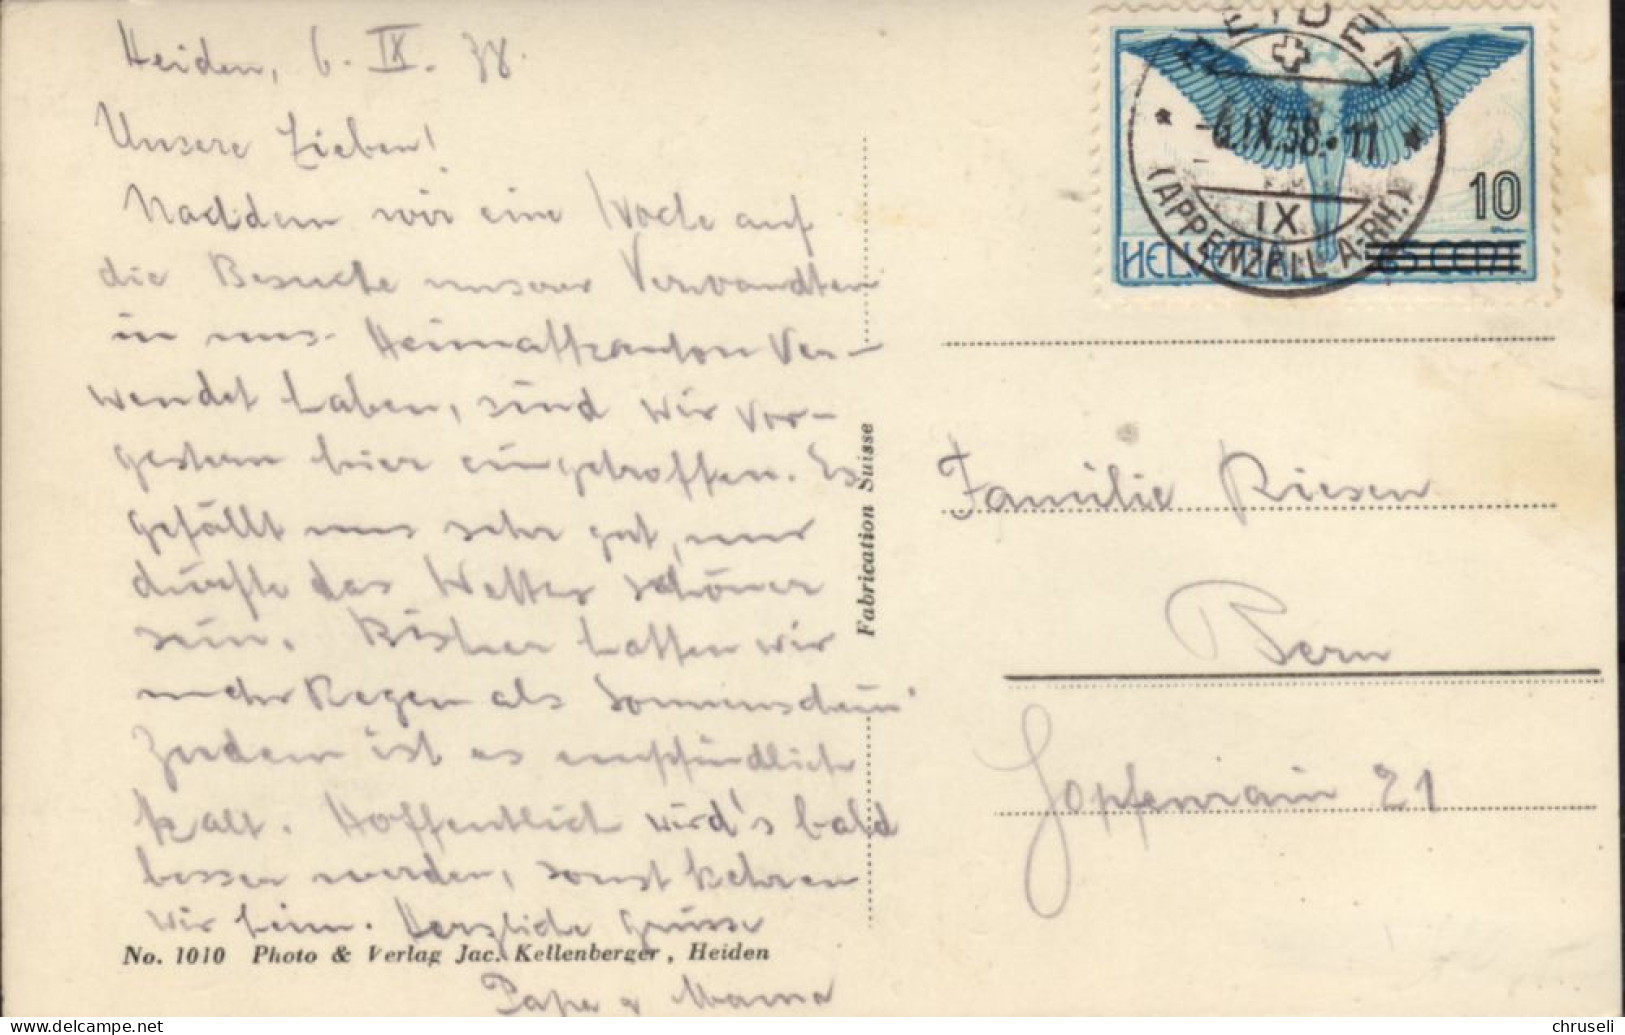 Heiden, 6. IX. 38.
Unsere Lieben!
Nachdem wir eine Woche auf
die Besuche unserer Verwandten
in uns. Heimatkanton Ver-
wendet haben, sind wir vor-
gestern hier eingetroffen. Es
gefällt uns sehr gut, nur
dürfte das Wetter schöner
sein. Bisher hatten wir
mehr Regen als Sonnenschein.
Zudem ist es empfindlich
kalt. Hoffentlich wird's bald
besser werden, sonst kehren
wir heim. Herzliche Grüsse
No. 1010 Photo & Verlag Jac. Kellenberger, Heiden
Papa & Mama
Fabrication Suisse
HEIDEN
-6.IX.38.-11
IX
(APPENZELL A.-RH.)
10
HELVETIA 65 CENT.
Familie Riesen
Bern
Hopfenrain 21
www.delcampe.net
chruseli